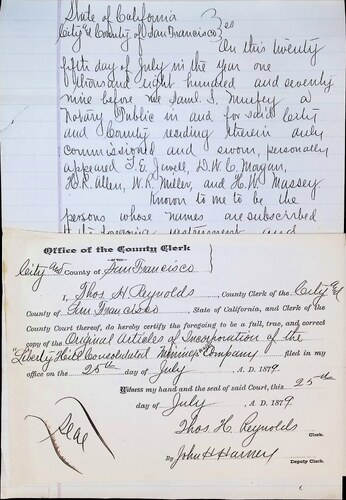 State of California
City & County of San Francisco } ss
On this twenty
fifth day of July in the year one
thousand eight hundred and seventy
nine before me Saml. S. Murfey a
Notary Public in and for said City
and County residing therein duly
commissioned and sworn, personally
appeared T. E. Jewell, D. W. C. Morgan,
H. R. Allen, W. K. Miller, and H. W. Massey
Known to me to be the
persons whose names are subscribed
Office of the County Clerk
City and County of San Francisco
I, Thos H Reynolds, County Clerk of the City &
County of San Francisco State of California, and Clerk of the
County Court thereof, do hereby certify the foregoing to be a full, true, and correct
copy of the Original Articles of Incorporation of the
"Liberty Hill Consolidated Mining Company" filed in my
office on the 25th day of July A. D. 1879
Witness my hand and the seal of said Court, this 25th
day of July, A. D. 1879.
Seal
Thos H. Reynolds
Clerk.
By John H Harney
Deputy Clerk.